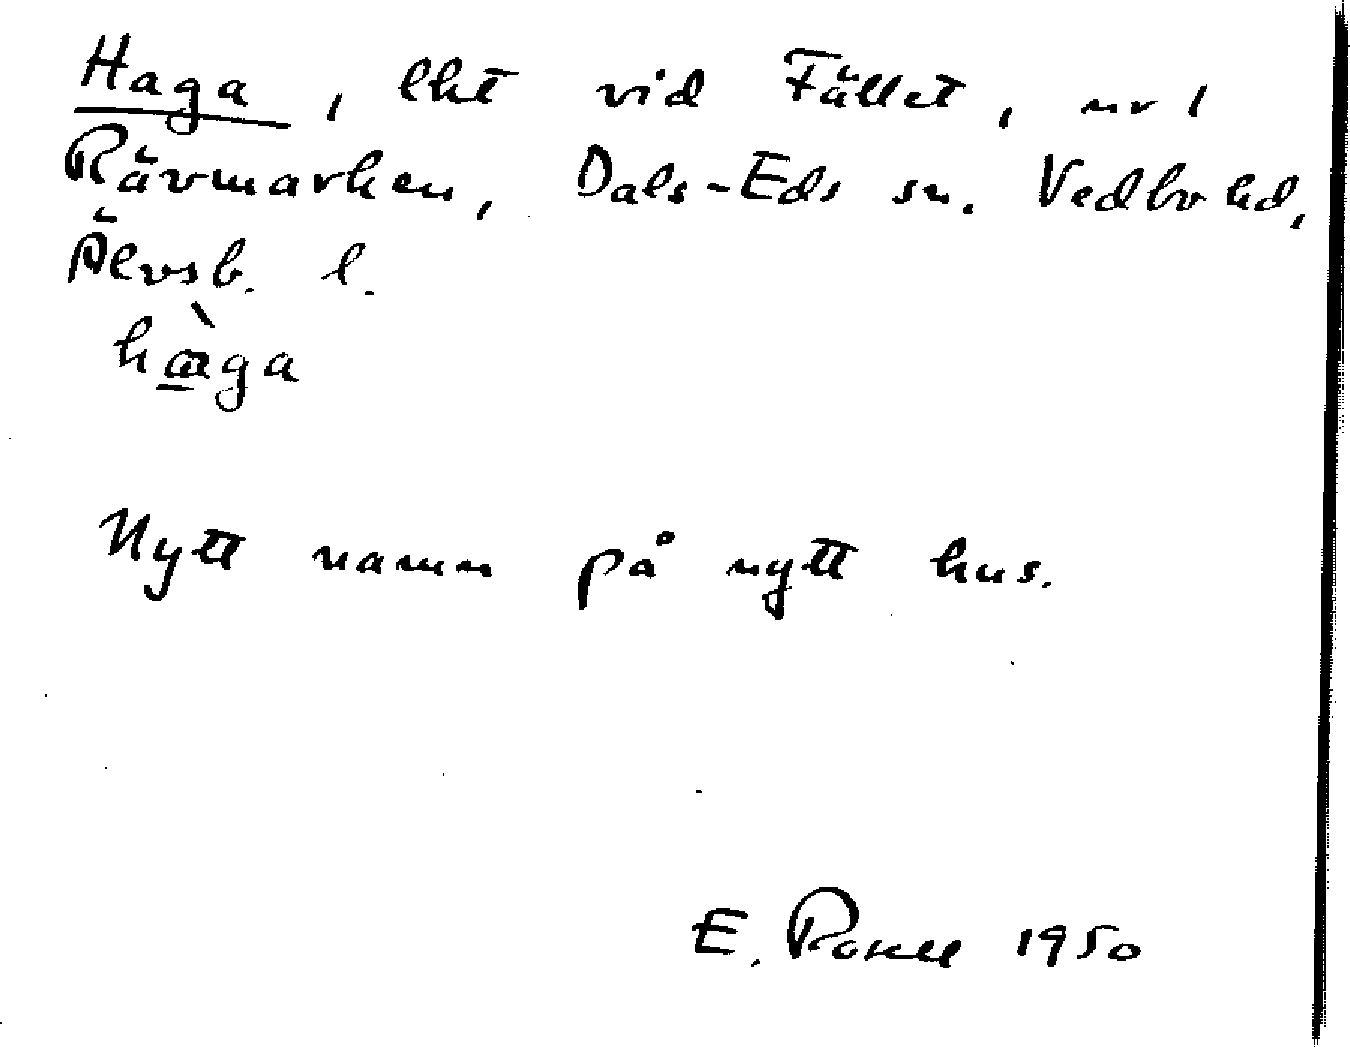 Haga, lht vid Fället, nr 1
Rävmarken, Dals-Eds sn. Vedbo hd,
Älvsb. l.
hàga
Nytt namn på nytt hus.
E. Rosell 1950